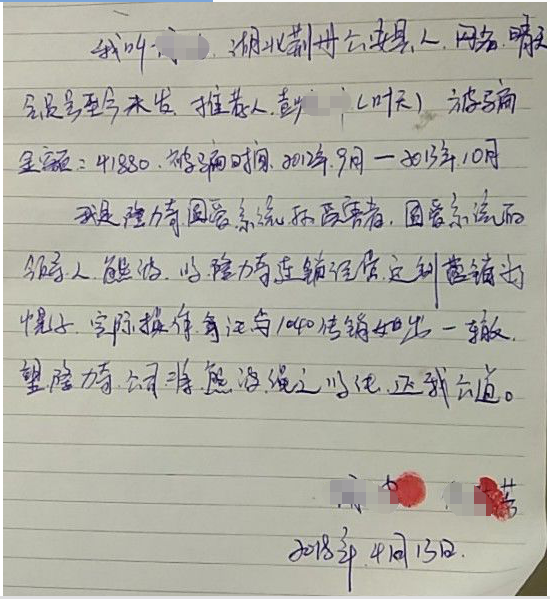 我叫 湖北荆州公安县人, 网名, 晴天
会员号至今未发, 推荐人, 彭 (叶天) 被骗
金额: 41880. 被骗时间, 2012年9月—2013年10月
我是隆力奇圆爱系统的受害者, 圆爱系统的
领导人熊波, 以隆力奇连锁经营之划营销为
幌子, 实际操作手法与1040传销如出一辙,
望隆力奇公司将熊波绳之以法, 还我公道。
2018年4月13日.